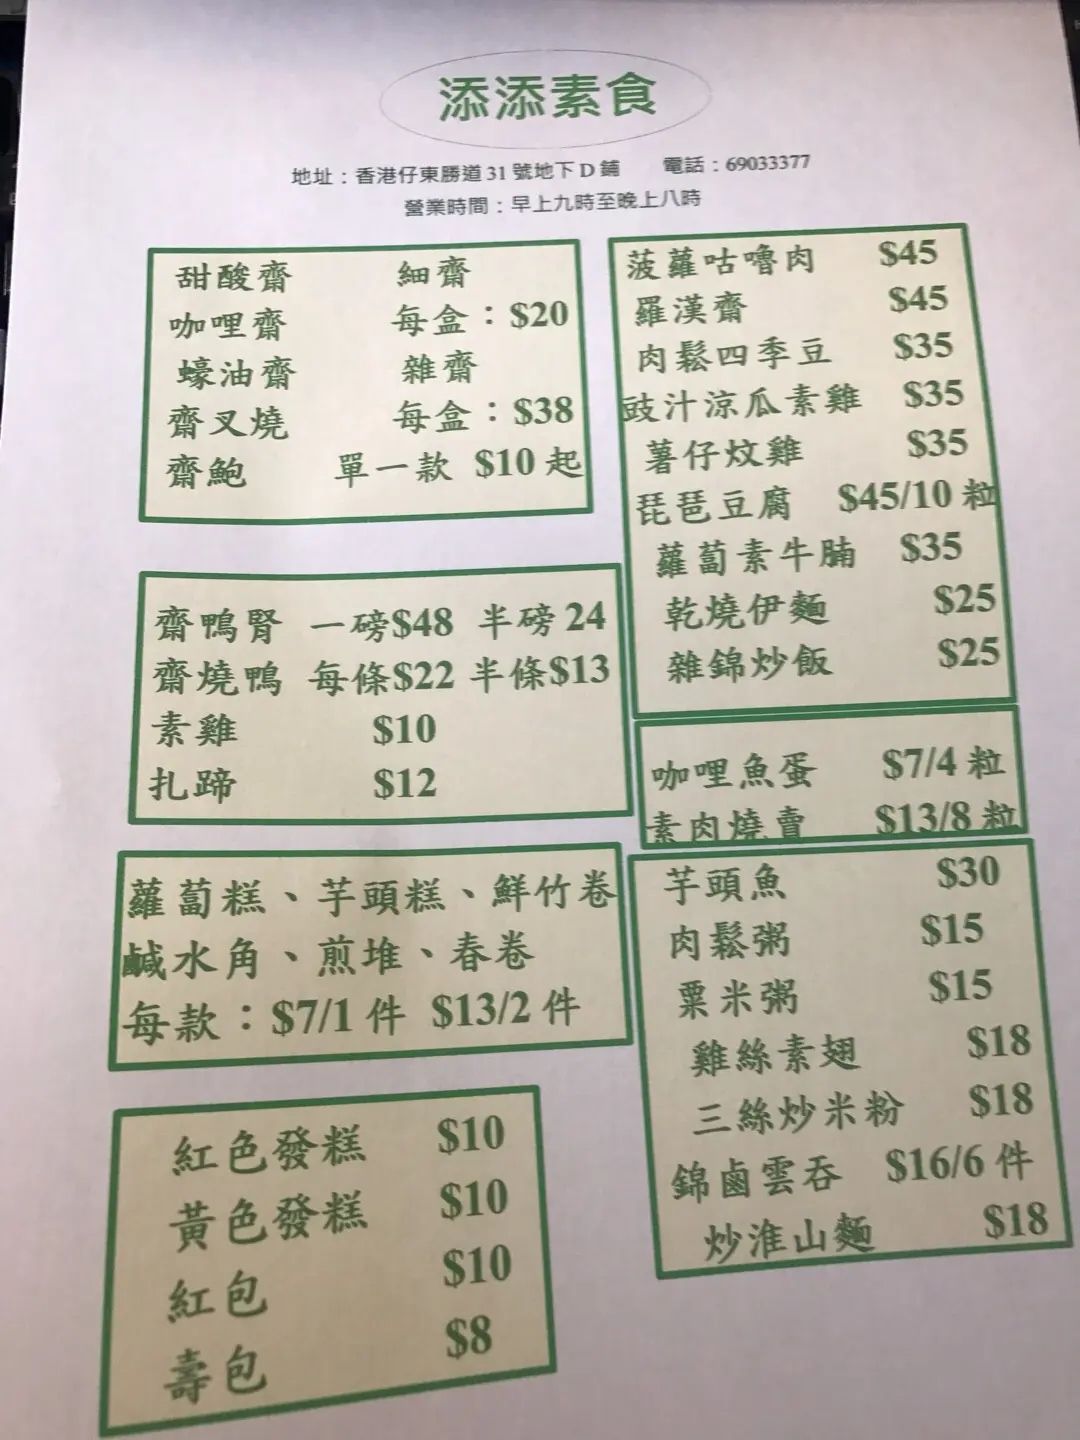 添添素食
地址：香港仔東勝道 31 號地下 D 鋪 電話：69033377
營業時間：早上九時至晚上八時
甜酸齋 細齋
咖哩齋 每盒：$20
蠔油齋 雜齋
齋叉燒 每盒：$38
齋鮑 單一款 $10 起
齋鴨腎 一磅$48 半磅 24
齋燒鴨 每條$22 半條$13
素雞 $10
扎蹄 $12
蘿蔔糕、芋頭糕、鮮竹卷
鹹水角、煎堆、春卷
每款：$7/1 件 $13/2 件
紅色發糕 $10
黃色發糕 $10
紅包 $10
壽包 $8
菠蘿咕嚕肉 $45
羅漢齋 $45
肉鬆四季豆 $35
豉汁涼瓜素雞 $35
薯仔炆雞 $35
琵琶豆腐 $45/10 粒
蘿蔔素牛腩 $35
乾燒伊麵 $25
雜錦炒飯 $25
咖哩魚蛋 $7/4 粒
素肉燒賣 $13/8 粒
芋頭魚 $30
肉鬆粥 $15
粟米粥 $15
雞絲素翅 $18
三絲炒米粉 $18
錦鹵雲吞 $16/6 件
炒淮山麵 $18